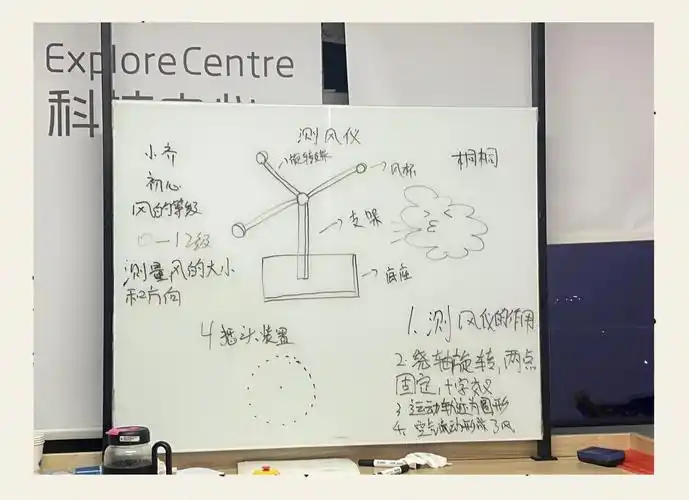 Explore Centre
科技
测风仪
小齐
初心
风的等级
0—12级
测量风的大小
和方向
旋转
→风杯
→支架
→底座
桐桐
4 摇头装置
1. 测风仪的作用
2. 绕轴旋转,两点
固定,十字交叉
3 运动轨迹为圆形
4. 空气流动形成了风